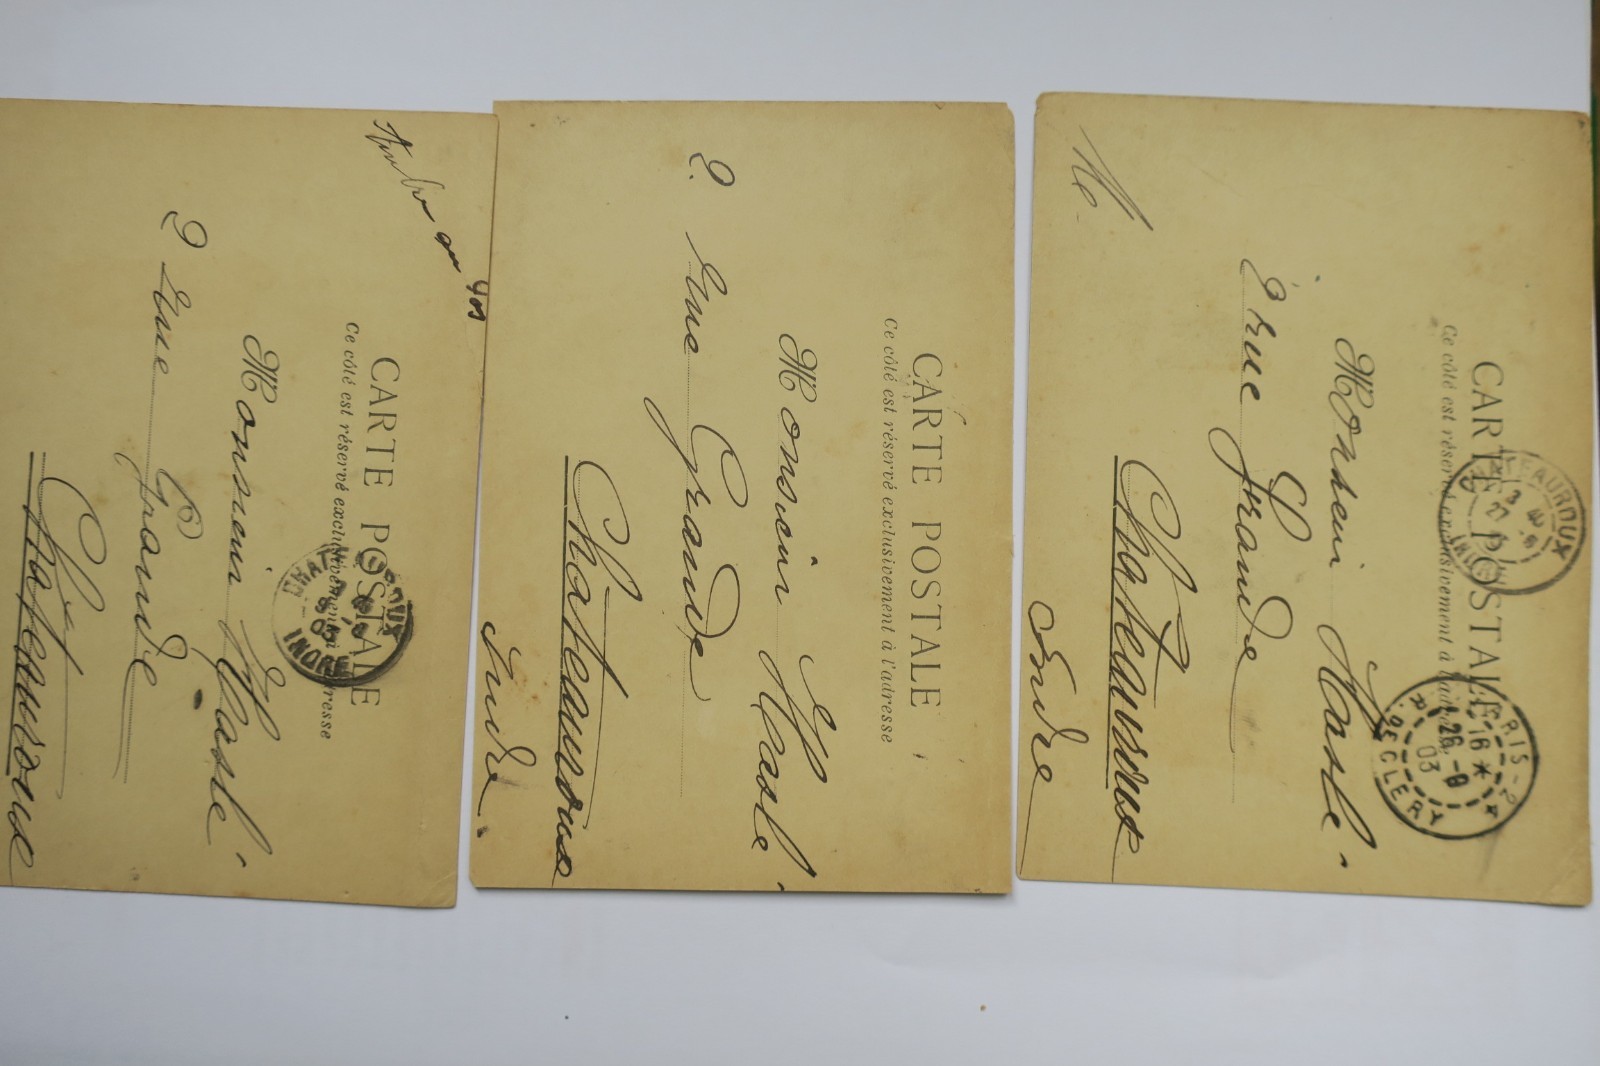 CARTE POSTALE
Ce côté est réservé exclusivement à l'adresse
Monsieur Hasle
2 rue Grande
Chateauroux
CARTE POSTALE
Ce côté est réservé exclusivement à l'adresse
Monsieur Hasle
2. rue Grande
Chateauroux
Indre.
CARTE POSTALE
Ce côté est réservé exclusivement à l'adresse
CHATEAUROUX
INDRE
PARIS-2
16
26-9
03
R. DE CLERY
Monsieur Hasle
rue Grande
Chateauroux
Indre